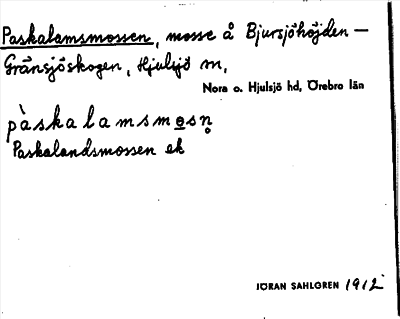 Paskalamsmossen, mosse å Bjursjöhöjden –
Gränsjöskogen, Hjulsjö sn,
Nora o. Hjulsjö hd, Örebro län
pàskalamsmo̲sn̥
Paskalandsmossen ek
JÖRAN SAHLGREN 1912